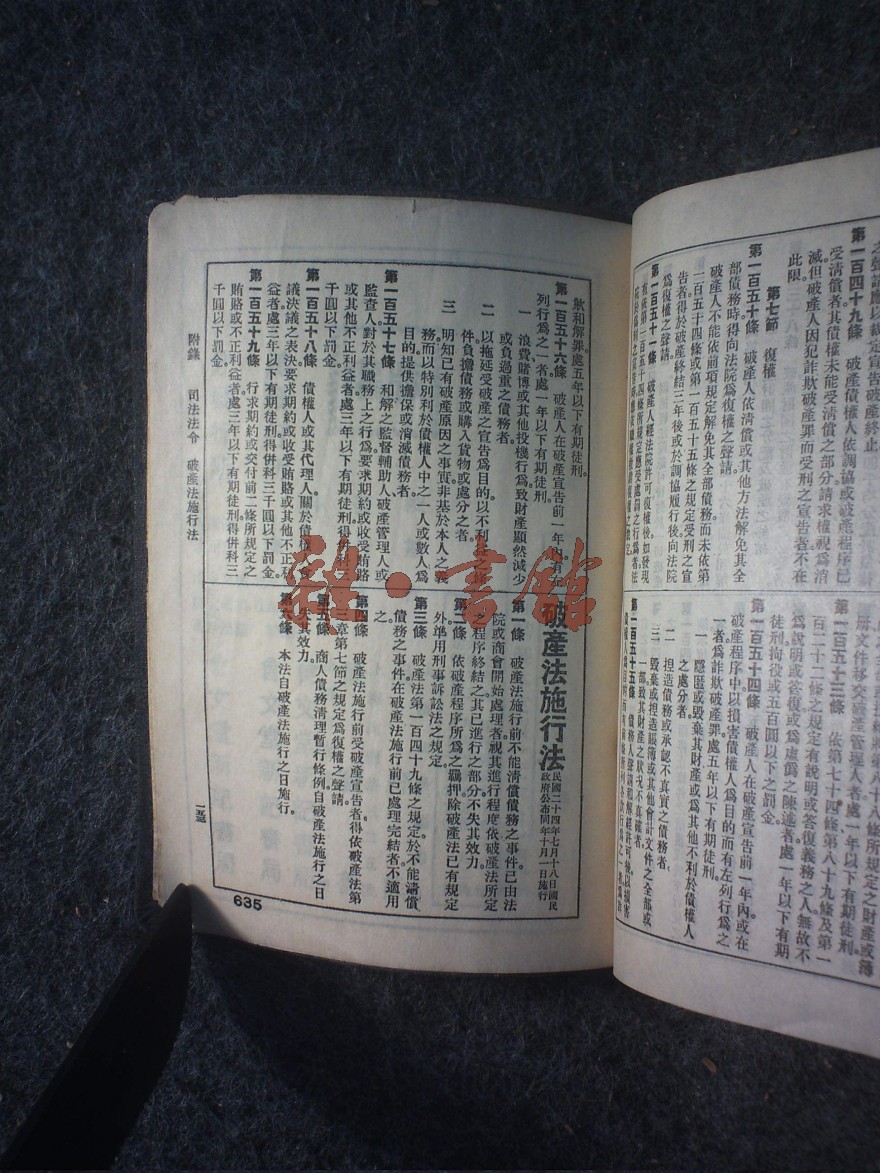 之聲請應以裁定宣告破產終止
第一百四十九條 破產債權人依調協或破產程序已
受清償者其債權未能受清償之部分請求權視爲消
滅但破產人因犯詐欺破產罪而受刑之宣告者不在
此限
第七節 復權
第一百五十條 破產人依清償或其他方法解免其全
部債務時得向法院爲復權之聲請
破產人不能依前項規定解免其全部債務而未依第
一百五十四條或第一百五十五條之規定受刑之宣
告者得於破產終結三年後或於調協履行後向法院
爲復權之聲請
第一百五十一條 破產人經法院許可復權後如發現
冊文件移交破產管理人者處一年以下有期徒刑
第一百五十三條 依第七十四條第八十九條及第一
百二十二條之規定有說明或答復義務之人無故不
爲說明或答復或爲虛僞之陳述者處一年以下有期
徒刑拘役或五百圓以下之罰金
第一百五十四條 破產人在破產宣告前一年內或在
破產程序中以損害債權人爲目的而有左列行爲之
一者爲詐欺破產罪處五年以下有期徒刑
一 隱匿或毀棄其財產或爲其他不利於債權人
之處分者
二 捏造債務或承認不眞實之債務者
三 毀棄或捏造賬簿或其他會計文件之全部或
一部致其財產之狀況不眞確者
欺和解罪處五年以下有期徒刑
第一百五十六條 破產人在破產宣告前一年內有左
列行爲之一者處一年以下有期徒刑
一 浪費賭博或其他投機行爲致財產顯然減少
或負過重之債務者
二 以拖延受破產之宣告爲目的以不利益之條
件負擔債務或購入貨物或處分之者
三 明知已有破產原因之事實非基於本人之義
務而以特別利於債權人中之一人或數人爲
目的提供擔保或消滅債務者
第一百五十七條 和解之監督輔助人破產管理人或
監查人對於其職務上之行爲要求期約或收受賄賂
或其他不正利益者處三年以下有期徒刑得併科三
千圓以下罰金
第一百五十八條 債權人或其代理人關於債權人會
議決議之表決要求期約或收受賄賂或其他不正利
益者處三年以下有期徒刑得併科三千圓以下罰金
第一百五十九條 行求期約或交付前二條所規定之
賄賂或不正利益者處三年以下有期徒刑得併科三
千圓以下罰金
破產法施行法
民國二十四年七月十八日國民
政府公布同年十月一日施行
第一條 破產法施行前不能清償債務之事件已由法
院或商會開始處理者視其進行程度依破產法所定
之程序終結之其已進行之部分不失其效力
第二條 依破產程序所爲之羈押除破產法已有規定
外準用刑事訴訟法之規定
第三條 破產法第一百四十九條之規定於不能清償
債務之事件在破產法施行前已處理完結者不適用
之
第四條 破產法施行前受破產宣告者得依破產法第
三章第七節之規定爲復權之聲請
第五條 商人債務清理暫行條例自破產法施行之日
失其效力
第六條 本法自破產法施行之日施行
附錄 司法法令 破產法施行法
635
雜·書館